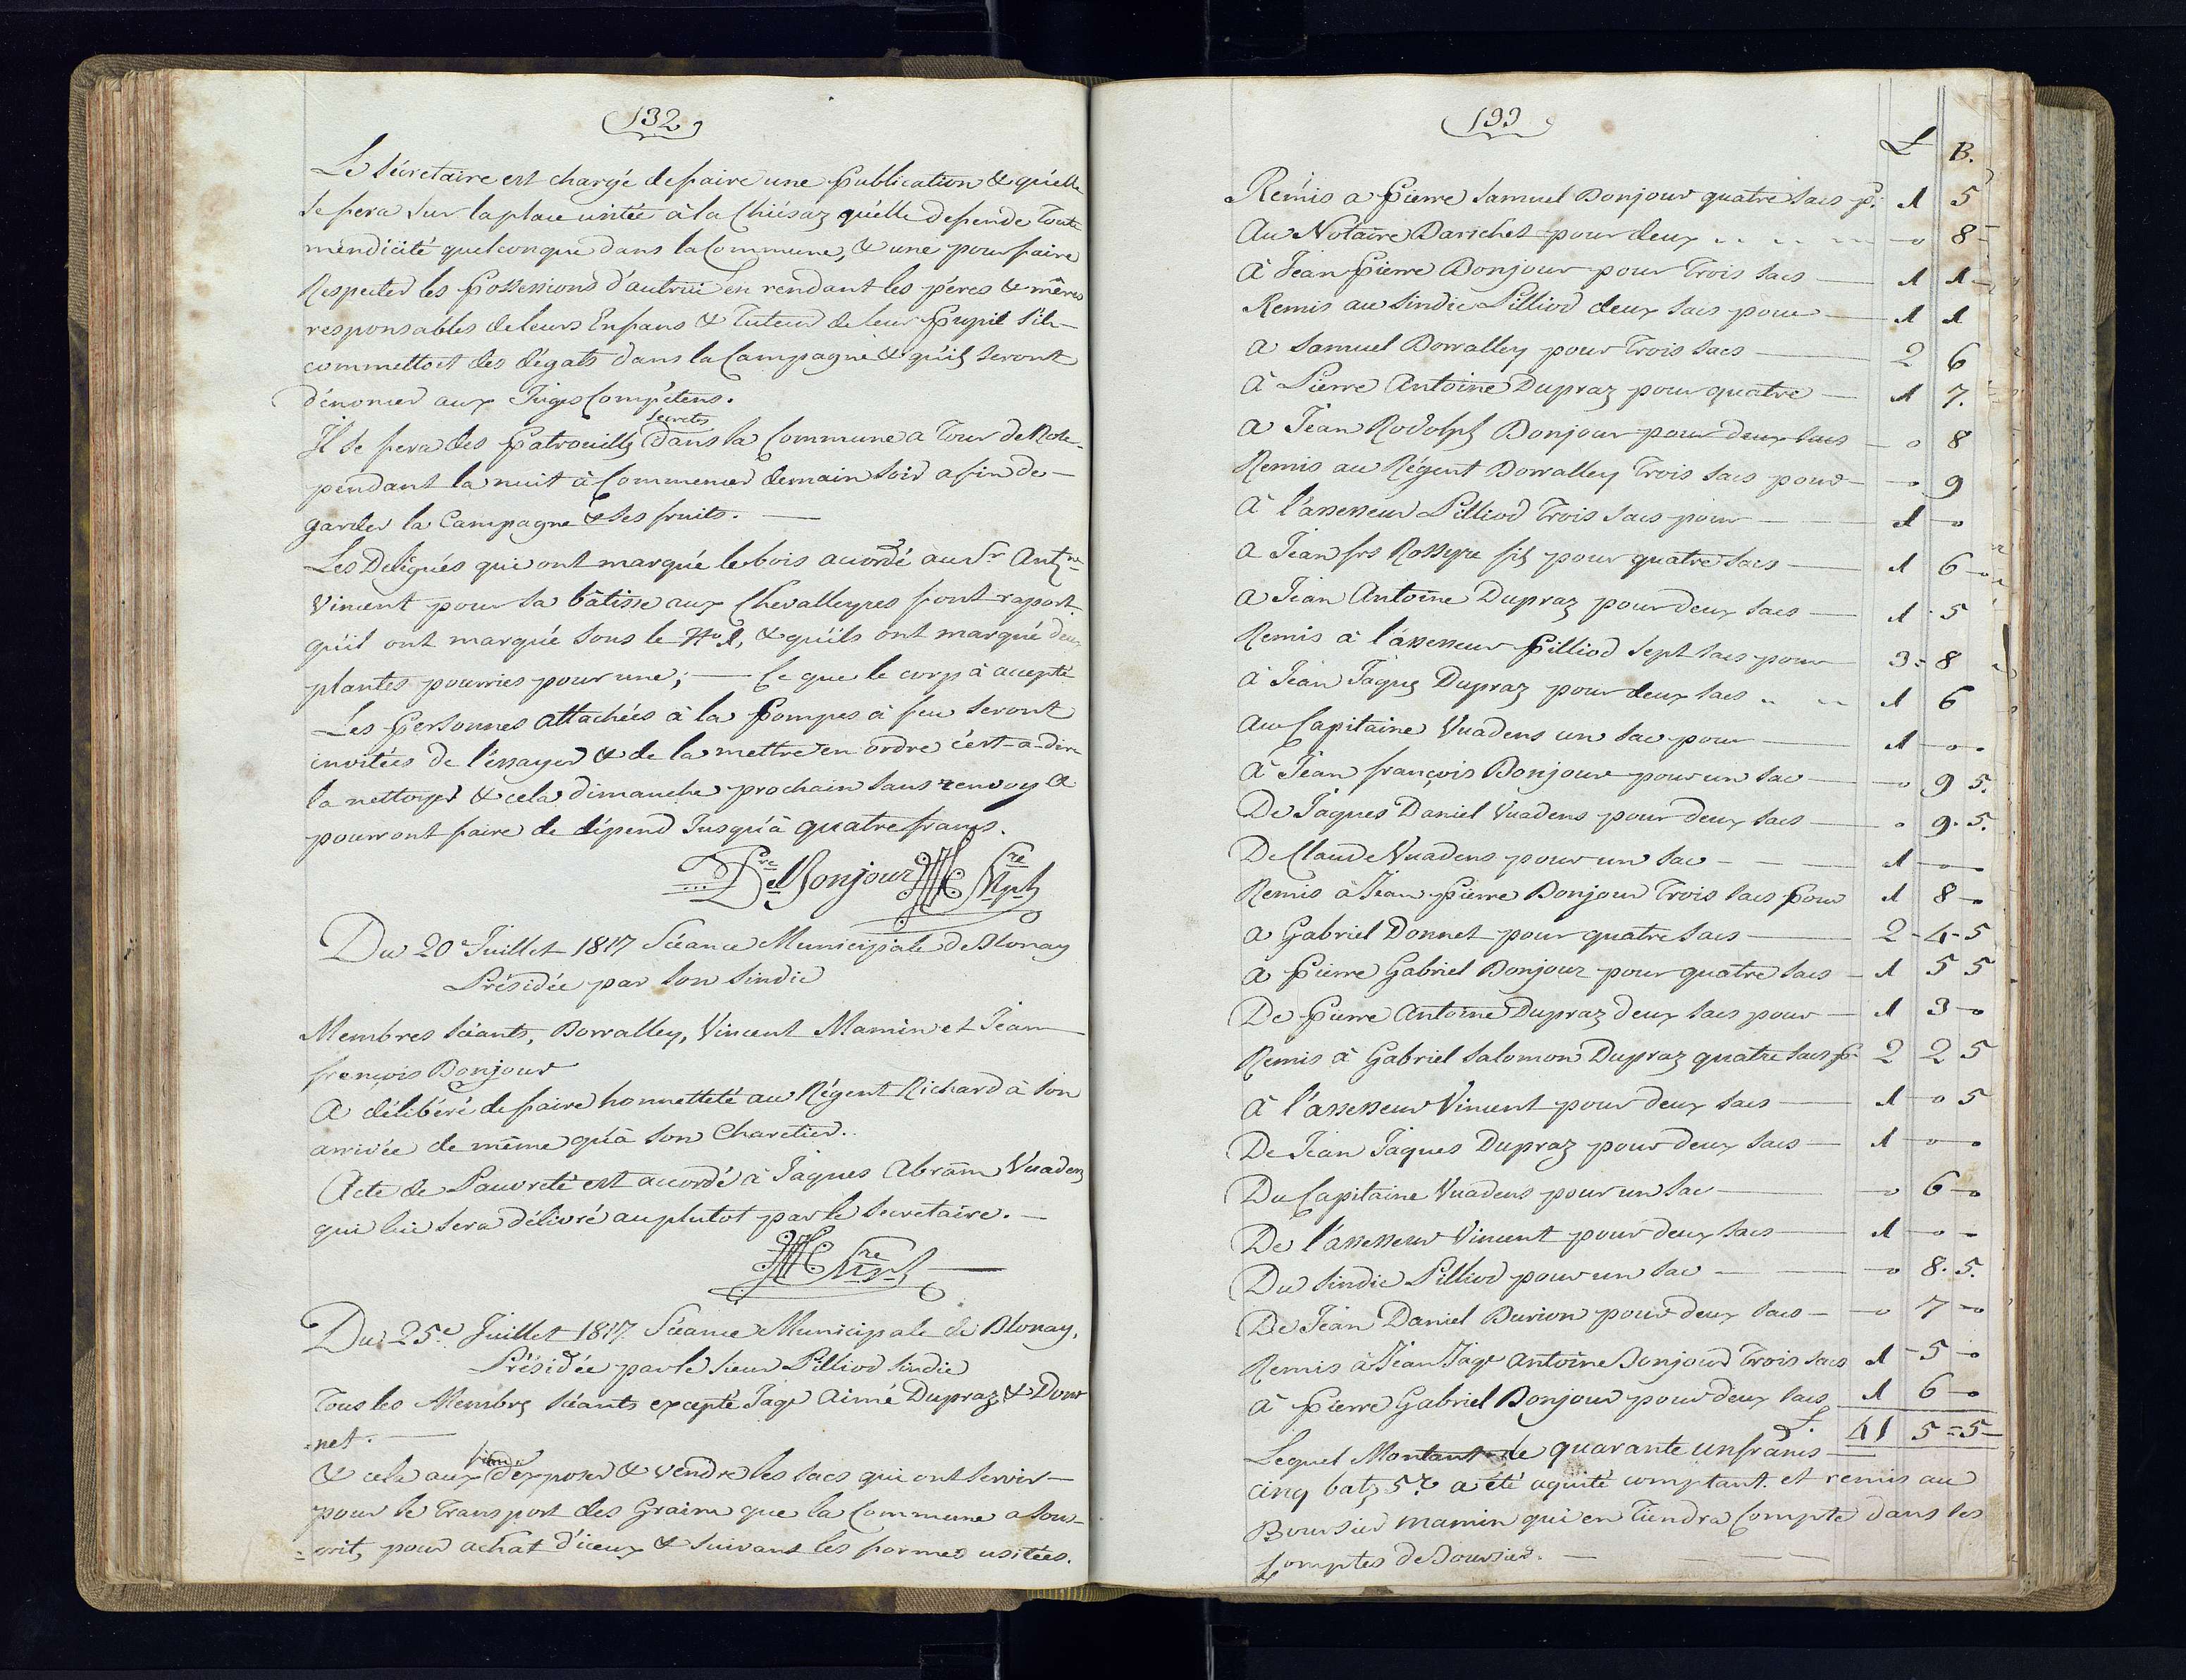 (132)
Le Sécretaire est chargé de faire une Publication & qu'elle
se fera sur la place usitée à la Chiésaz qu'elle defende Toute
méndicité quelconque dans la Commune, & une pour faire
Respecter les Possessions d'autrui en rendant les péres & méres
responsables de leurs Enfans & Tuteur de leur Pupil s'ils
commettoit des dégats dans la Campagne & qu'ils seront
dénoncer aux Juges Compétens.
Il se fera des Patrouills secretes dans la Commune a Tour de Role
pendant la nuit à Commencer demain soir afin de
garder la Campagne & les fruits.
Les Délégués qui ont marqué le bois acordé au Sr. Antne
Vincent pour sa bâtisse aux Chevalleyres font raport
qu'il ont marqué sous le No 1, & qu'ils ont marqué deux
plantes pourries pour une; — Ce que le corp à accepté
Les Personnes attachées à la Pompes à feu seront
invitées de l'éssayer & de la mettre en ordre c'est-a-dire
la nettoyer & cela dimanche prochain sans renvoy &
pourront faire de dépend Jusqu'à quatre francs.
Bonjour
Du 20e Juillet 1817 Séance Municipale de Blonay
Présidée par son Sindic
Membres séants, Dorralley, Vincent Mamin et Jean
françois Bonjour
A délibéré de faire honnetteté au Régent Richard à son
arrivée de même qu'à son Charetier.
Acte de Pauvreté est accordé à Jaques Abram Vuadens
qui lui sera délivré au plutot par le Secretaire. —
Du 25e. Juillet 1817. Séance Municipale de Blonay,
Présidée par le sieur Pilliod Sindic
Tous les Membrs séants excepté Jaqe Aimé Dupraz & Don
=net. —
& cela aux fins d'éxposer & vendre les sacs qui ont servir
pour le Transport des Graine que la Commune a sous-
=crit, pour achat d'iceux & suivant les formes usitées.
(133)
L B.
Rémis a Pierre Samuel Bonjour quatre sacs pr. 1 5
Au Notaire Darichet pour deux — 0 8
A Jean Pierre Bonjour pour Trois sacs — 1 1
Remis au Sindic Pilliod deux sacs pour — 1 1
A Samuel Dorralley pour Trois sacs — 2 6
A Pierre Antoine Dupraz pour quatre — 1 7.
A Jean Rodolph Bonjour pour deux sacs — 0 8
Remis au Régent Dorralley Trois sacs pour — 0 9
A l'ássesseur Pilliod Trois sacs pour — 1 — 0
A Jean frs Rossyre fils pour quatre sacs — 1 6 — 0
A Jean Antoine Dupraz pour deux sacs — 1 5
Remis à l'ássesseur Pilliod sept sacs pour 3 = 8
A Jean Jaques Dupraz pour deux sacs 1 6
Au Capitaine Vuadens un sac pour — 1 — 0 .
A Jean françois Bonjour pour un sac — 0 9 5.
De Jaques Daniel Vuadens pour deux sacs — 0 9. 5.
De Claude Vuadens pour un sac — 1 — 0 —
Remis à Jean Pierre Bonjour Trois sacs Pour 1 8 — 0
A Gabriel Donnet pour quatre sacs — 2 - 4 - 5
A Pierre Gabriel Bonjour pour quatre sacs — 1 5 5
De Pierre Antoine Dupraz deux sacs pour — 1 3 — 0
Remis à Gabriel Salomon Dupraz quatre sacs pr 2 2 5
A l'ássesseur Vincent pour deux sacs — 1 - 0 5
De Jean Jaques Dupraz pour deux sacs — 1 — 0 — 0
Du Capitaine Vuadens pour un sac — 0 6 — 0
De l'ássesseur Vincent pour deux sacs — 1 — 0 —
Du Sindic Pilliod pour un sac — 0 8. 5.
De Jean Daniel Burion pour deux sacs — 0 7 — 0
Remis à Jean Jaqe Antoine Bonjour Trois sacs 1 - 5 — 0
A Pierre Gabriel Bonjour pour deux sacs 1 6 — 0
L. 41 5 = 5
Lequel Montant de quarante un francs
cinq batz 5 r a été aquité comptant et remis au
Boursier Mamin qui en Tiendra Compte dans les
Comptes de Boursier. —